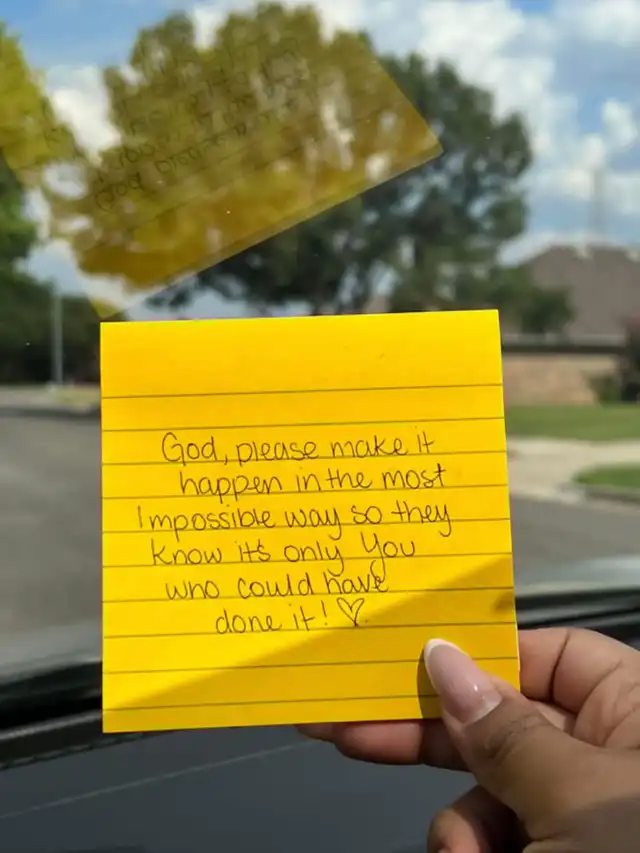 God, please make it
happen in the most
Impossible way so they
know it's only You
who could have
done it! ♡